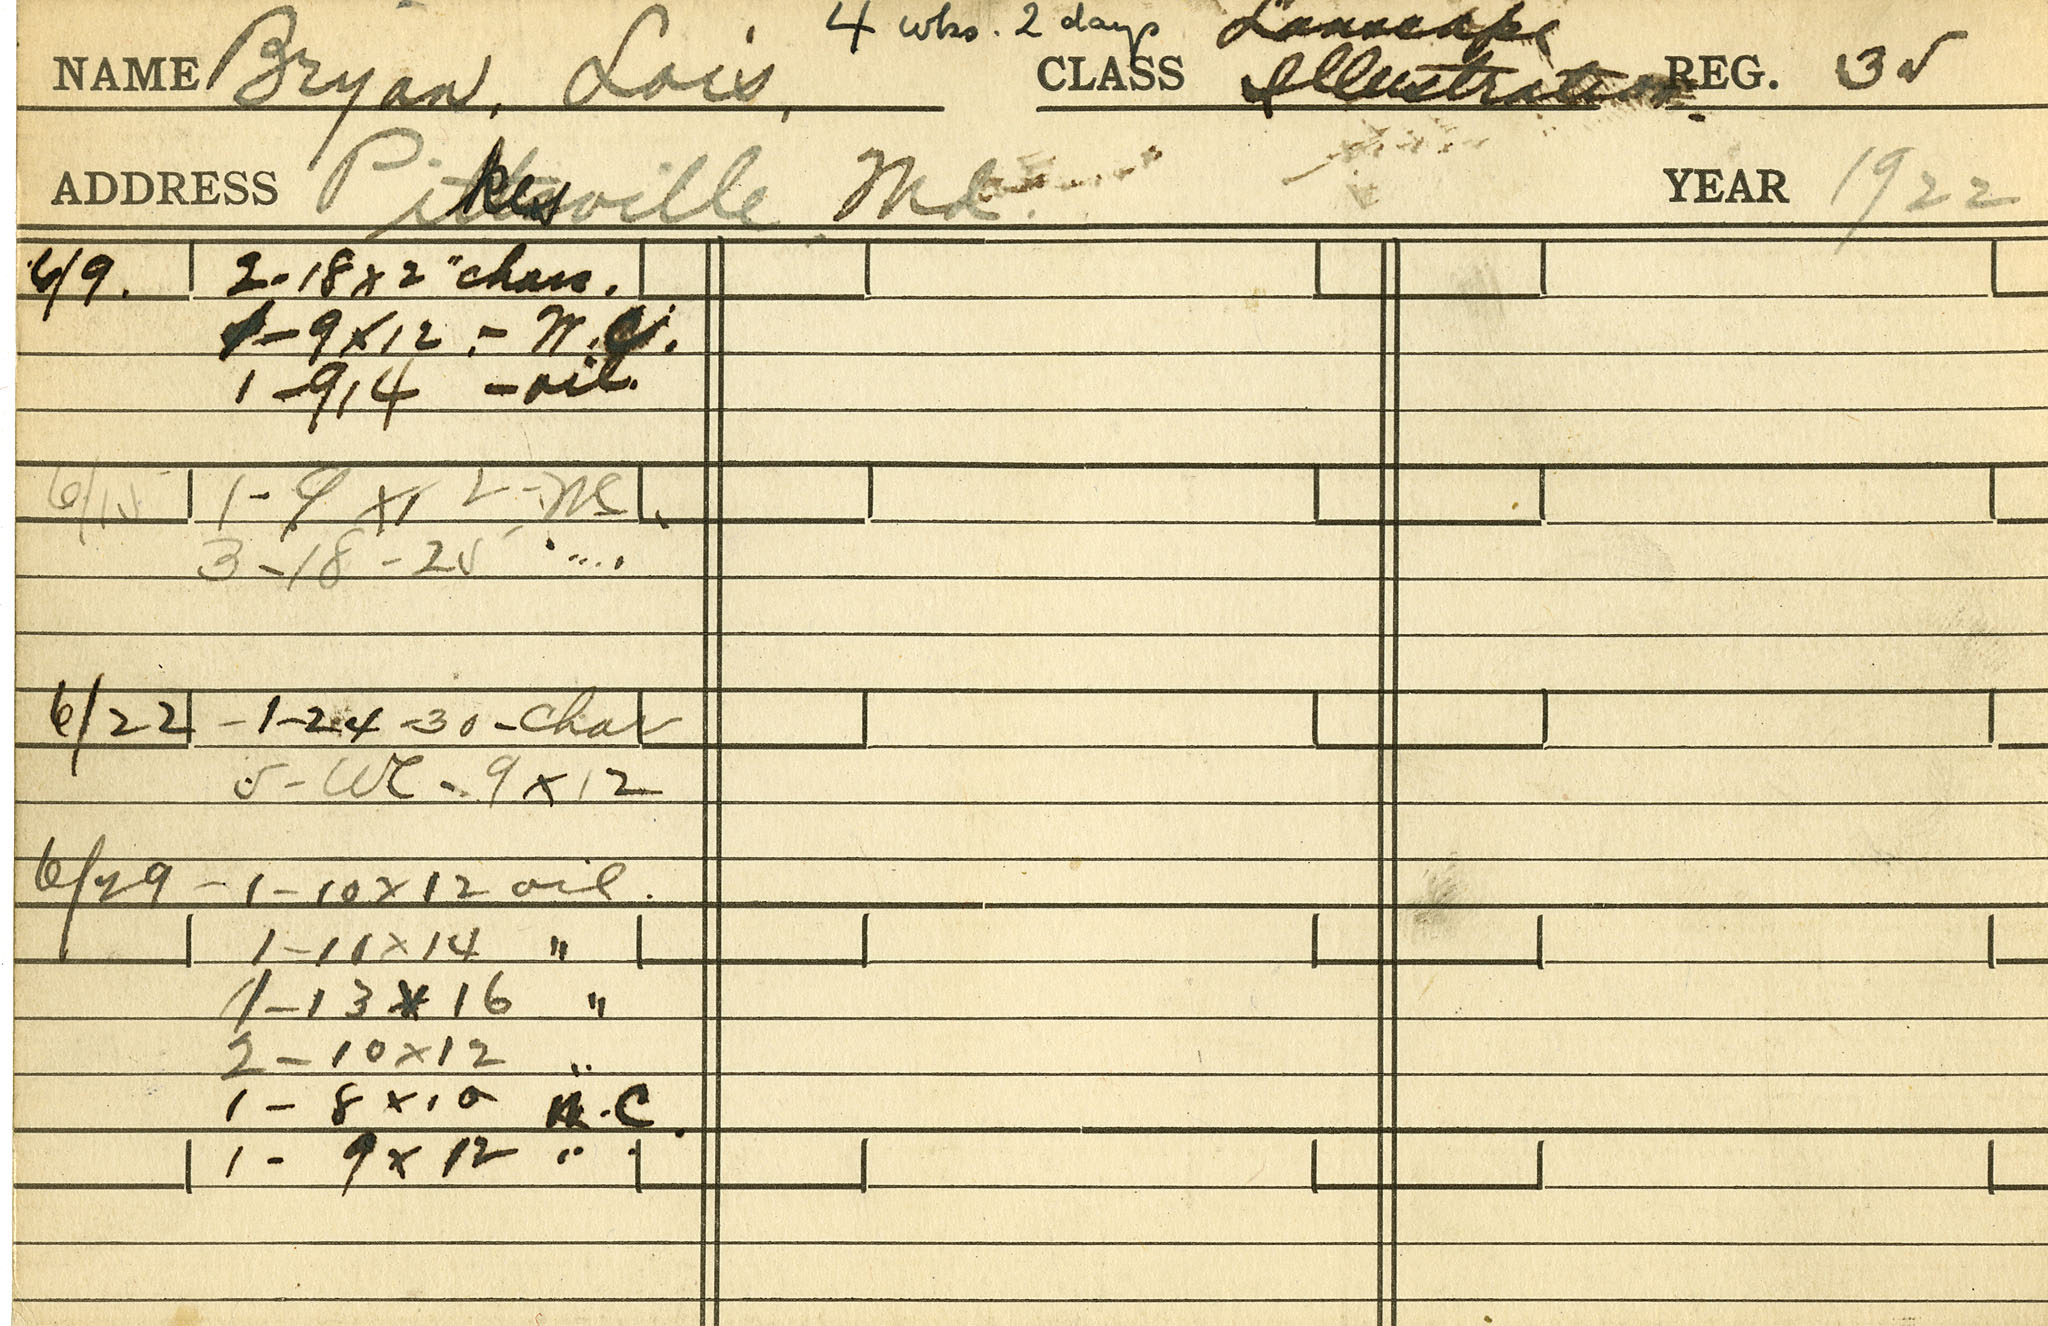 4 wks. 2 days Landscape
NAME Bryan, Lois, CLASS Illustration REG. 35
ADDRESS Pikesville Md. YEAR 1922
6/9. 2-18x2" char.
1-9x12 - W.C.
1-914 - oil.
6/15 1-9x12-WC
3-18-25 " "
6/22 -1-24-30-Char
5-WC-9x12
6/29 -1-10x12 oil.
1-11x14 "
1-13x16 "
2-10x12 "
1-8x10 W.C.
1-9x12 "